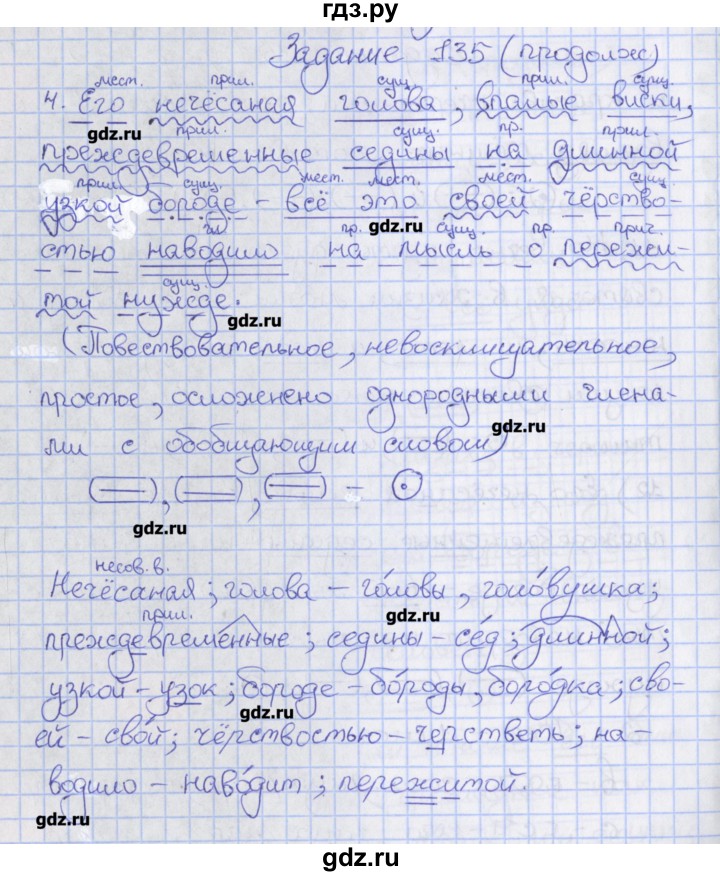 гдз.ру
Задание 135 (продолж)
мест. прил. сущ. прил. сущ.
4. Его нечёсаная голова, впалые виски,
gdz.ru
прил. сущ. пр. прил.
преждевременные седины на длинной
прил. сущ. мест. мест. мест. сущ.
узкой бороде - всё это своей чёрство-
gdz.ru
гл. пр. сущ. пр. прич.
стью наводило на мысль о пережи-
сущ.
той нужде.
gdz.ru
(Повествовательное, невосклицательное,
простое, осложнено однородными члена-
gdz.ru
ми с обобщающим словом)
gdz.ru
несов. в.
Нечёсаная; голова - го́ловы, голо́вушка;
gdz.ru
прил.
преждевременные; седины - се́д; длинной;
узкой - узок; бороде - бо́роды, боро́дка; сво-
gdz.ru
ей - сво́й; чёрствостью - черстветь; на-
водило - наво́дит; пережитой.
gdz.ru
gdz.ru
gdz.ru